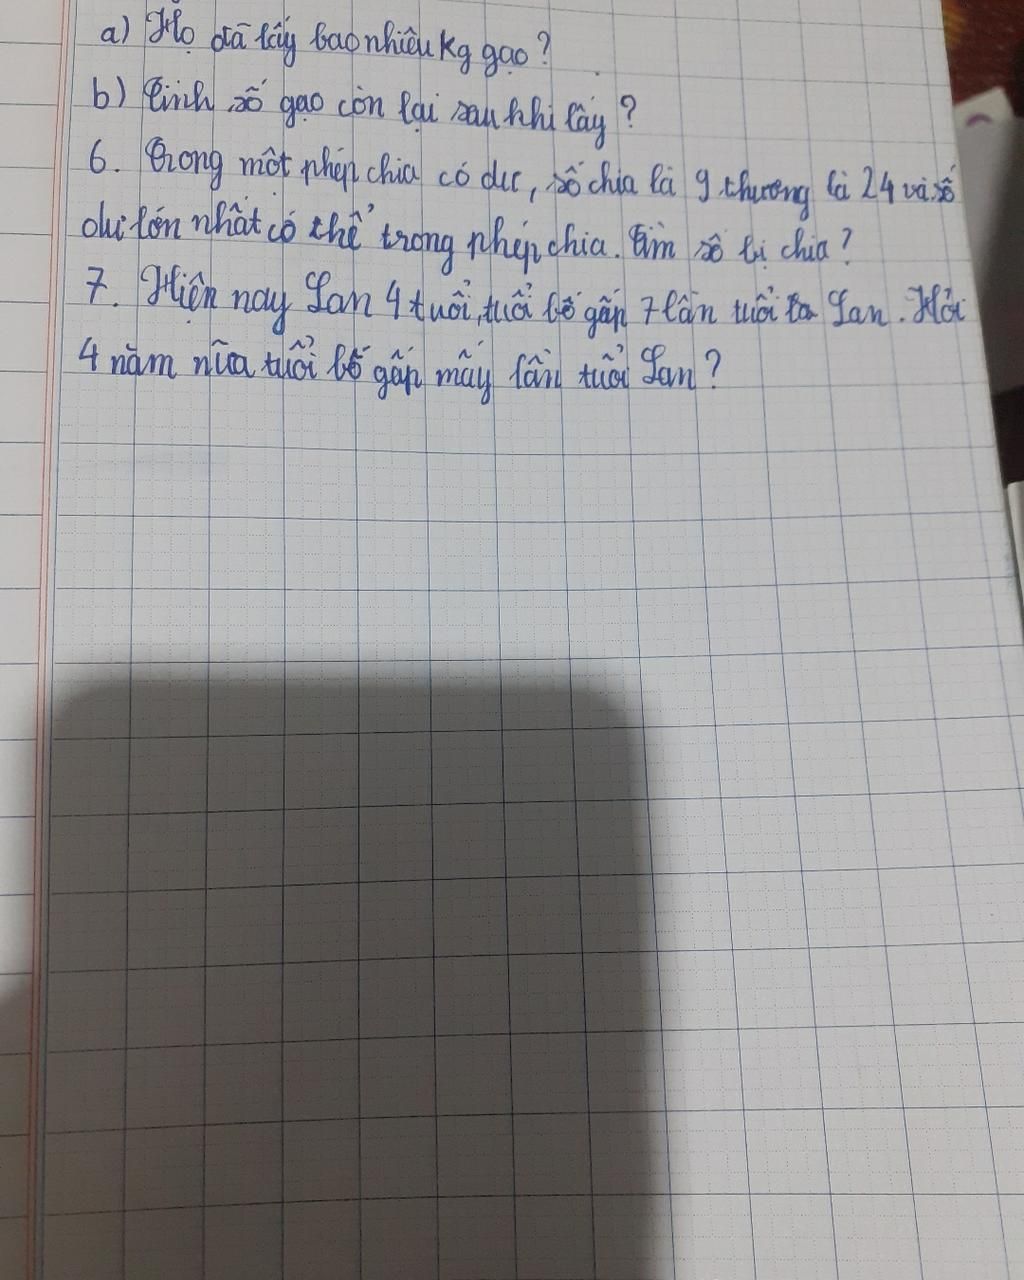 a) Họ đã lấy bao nhiêu kg gạo?
b) Tính số gạo còn lại sau khi lấy?
6. Trong một phép chia có dư, số chia là 9 thương là 24 và số
dư lớn nhất có thể trong phép chia. Tìm số bị chia?
7. Hiện nay Lan 4 tuổi, tuổi bố gấp 7 lần tuổi Lan. Hỏi
4 năm nữa tuổi bố gấp mấy lần tuổi Lan?